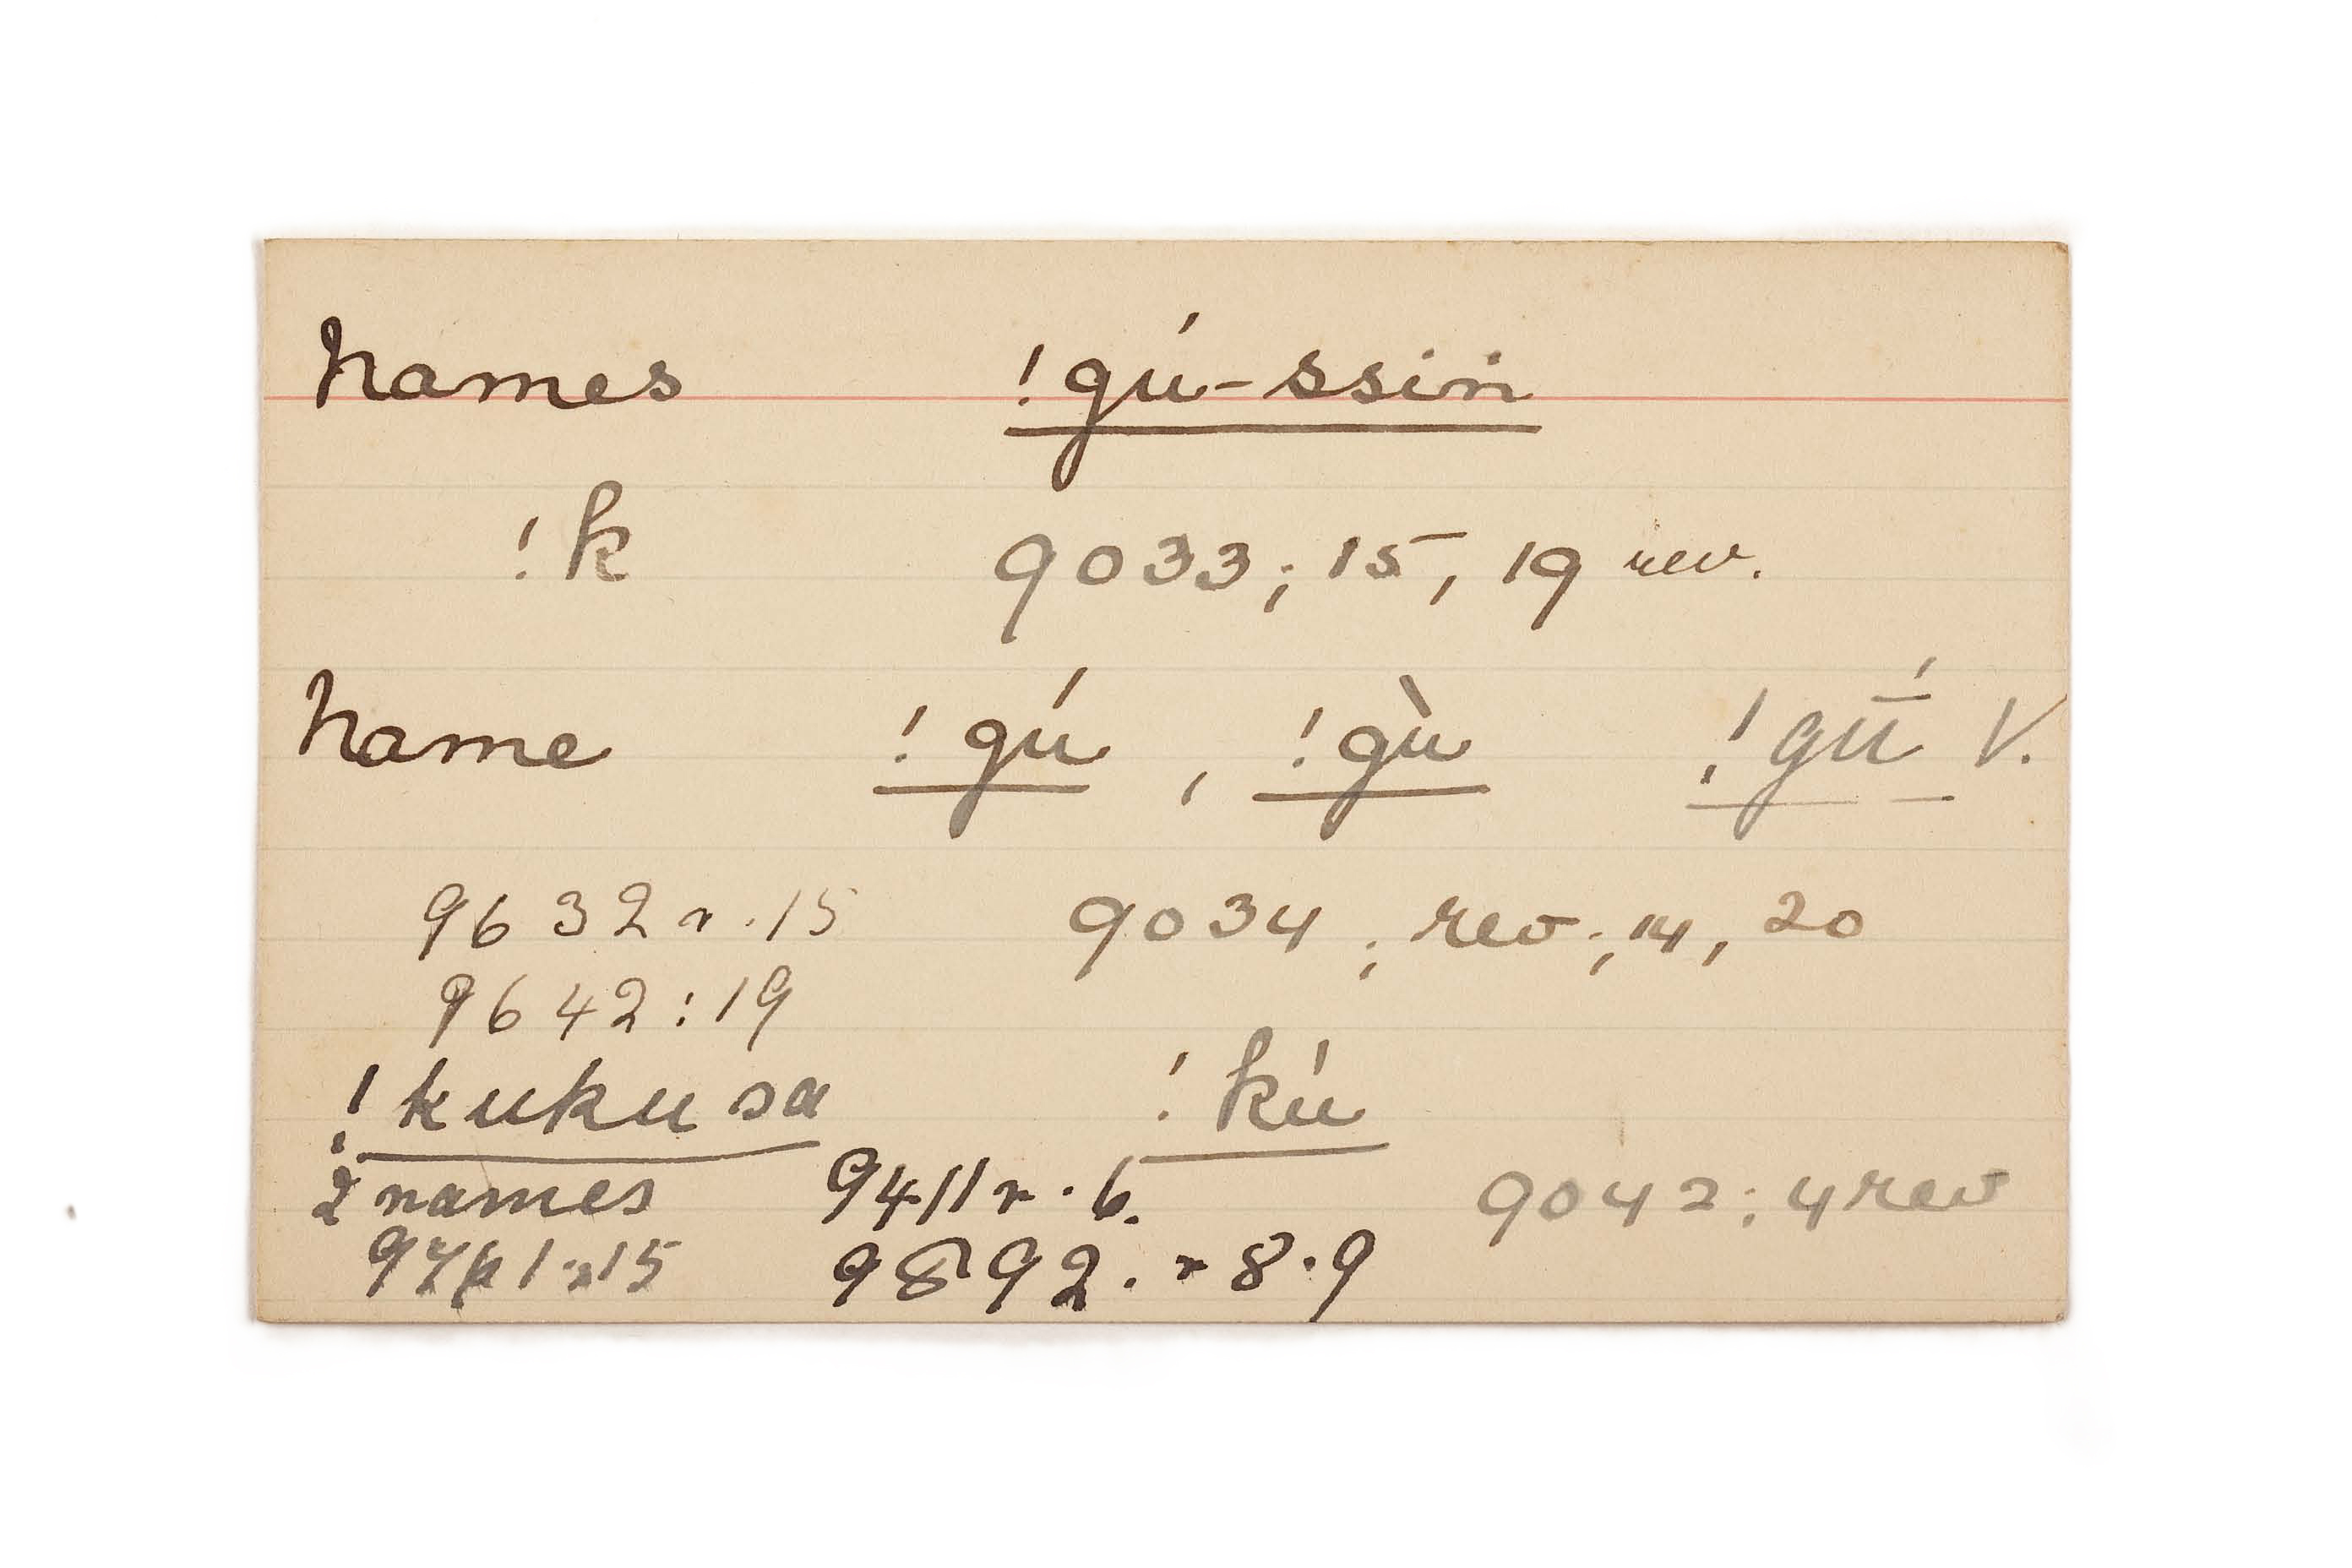 Names !gú-ssin
!k 9033; 15, 19 rev.
Name !gú, !gù !gū́ V.
9632 r. 15 9034; rev; 14, 20
9642: 19
!kukusa !kú
2 names 9411 r. 6. 9042: 4 rev
9892. r 8. 9